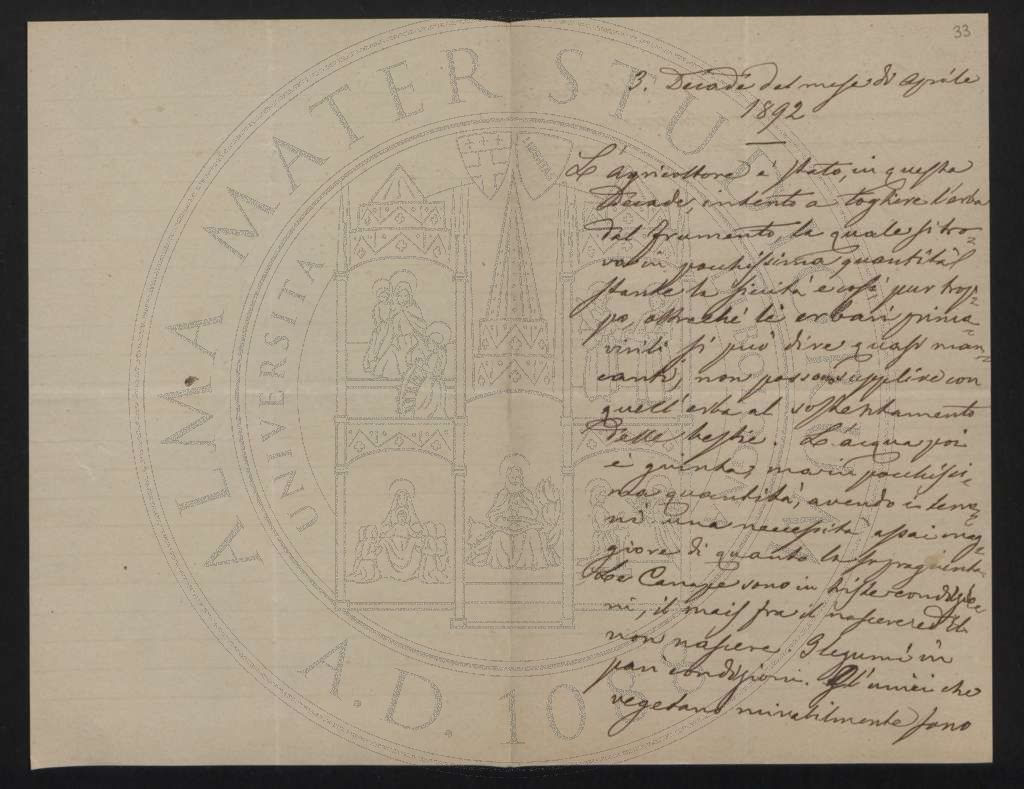 33
3. Decade del mese di Aprile
1892
L'agricoltore è stato, in questa
Decade, intento a togliere l'erba
dal frumento, la quale si tro=
va in pochissima quantità
stante la siccità e così pur trop=
po, attesoché le erbari prima=
virili si può dire quasi man=
canti, non possono supplire con
quell'erba al sostentamento
delle bestie. L'acqua poi
è giunta, ma in pochissi=
ma quantità, avendo i terre=
ni una necessità assai mag=
giore di quanto la sopragiunta.
Le Canape sono in triste condizio=
ni, il mais fra il nascere ed il
non nascere. I legumi in
pari condizioni. Gl'unici che
vegetano mirabilmente sono
ALMA MATER STUD
UNIVERSITA
A.D. 1088